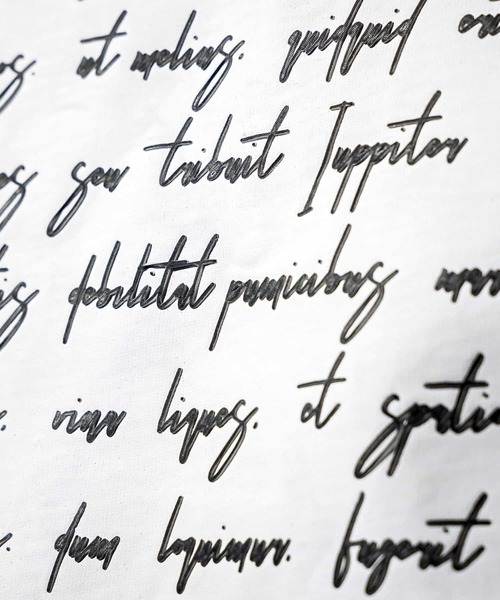 ut melius. quidquid
seu tribuit Iuppiter
debilitat pumicibus mar
vina liques. et spatio
dum loquimur. fugerit